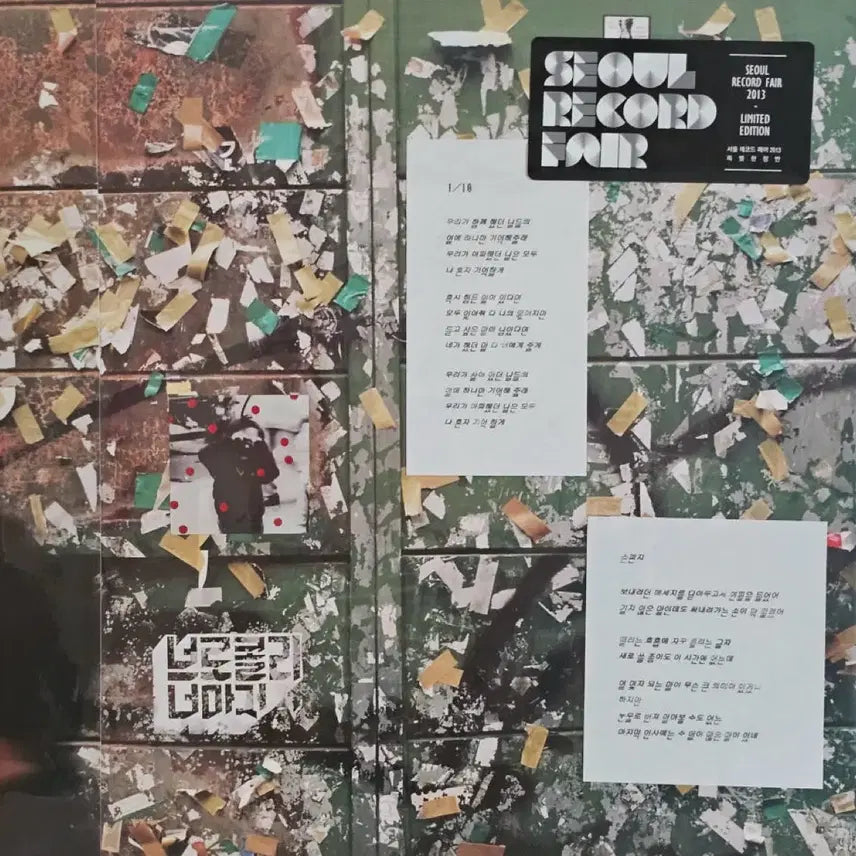 SEOUL
RECORD
FAIR
SEOUL
RECORD FAIR
2013
-
LIMITED
EDITION
서울 레코드 페어 2013
특별한정반
1/10
우리가 함께 했던 날들의
열에 하나만 기억해줄래
우리가 아파했던 날은 모두
나 혼자 기억할게
혹시 힘든 일이 있다면
모두 잊어줘 다 나의 몫이지만
듣고 싶은 말이 남았다면
네가 했던 말 다 너에게 줄게
우리가 살아 있던 날들의
열에 하나만 기억해 줄래
우리가 아파했던 날은 모두
나 혼자 기억 할게
브로콜리
너마저
손편지
보내려던 메세지를 담아두고서 연필을 들었어
길지 않은 말인데도 써내려가는 손이 막 떨려와
떨리는 호흡에 자꾸 틀리는 글자
새로 쓸 종이도 이 시간엔 없는데
되는 말이 무슨 큰 의미가 있겠냐
하지만
눈물로 번져 알아볼 수도 없는
마지막 인사에는 수 없이 많은 말이 있네